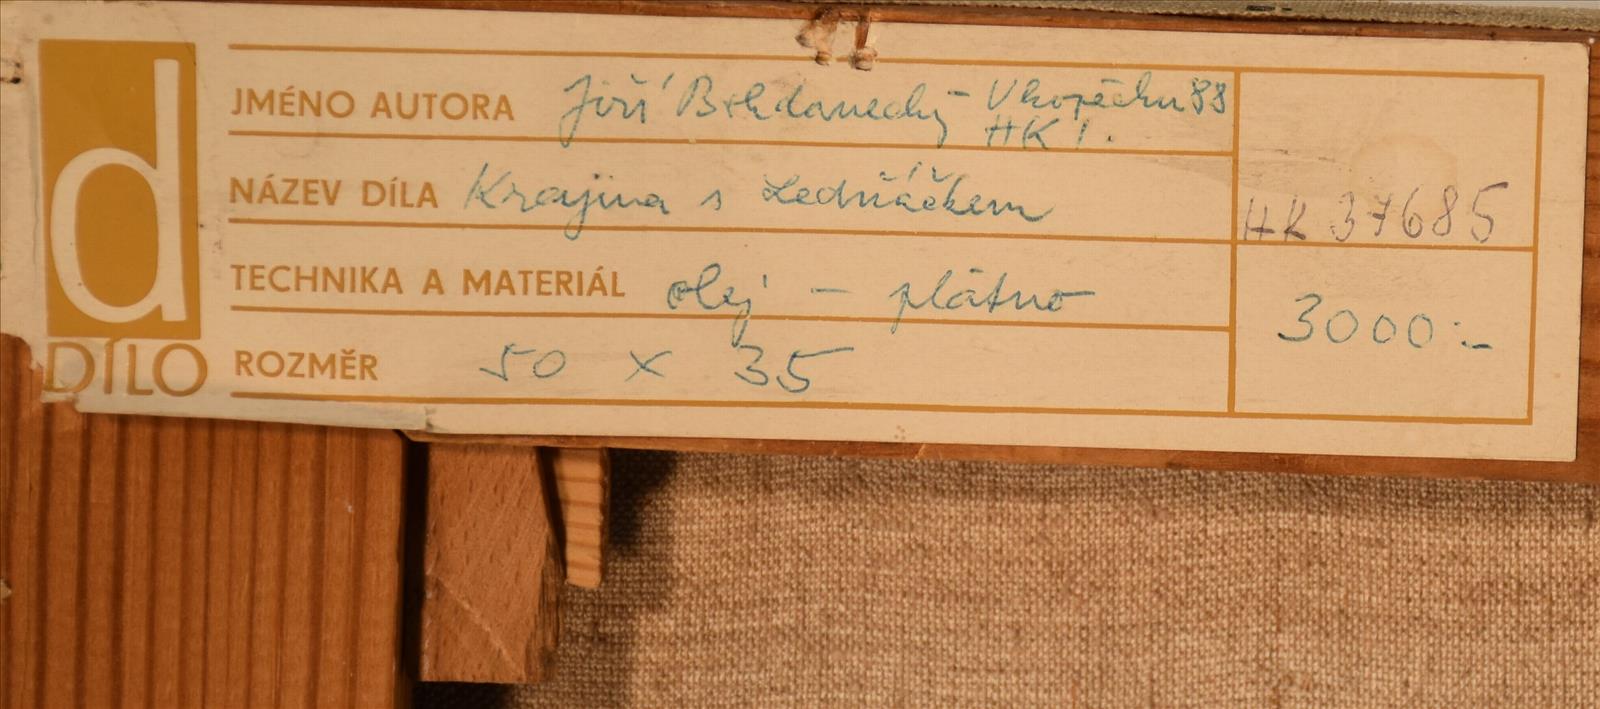 d
DÍLO
JMÉNO AUTORA Jiří Bohdanecký – V kopečku 88
HK 1.
NÁZEV DÍLA Krajina s Ledňáčkem
HK 37685
TECHNIKA A MATERIÁL olej – plátno
3000:-
ROZMĚR 50 x 35